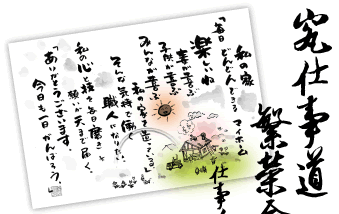 私の家
「毎日どんどんできるマイホーム
楽しいね
妻が喜ぶ
子供が喜ぶ
みんなが喜ぶ
私の手で造っている」
そんな気持で働く
職人になりたい。
私の心と技を毎日磨き
願いが天まで届く、
「ありがとうございます。
今日も一日がんばろう。」
仕事
究仕事道
繁栄会